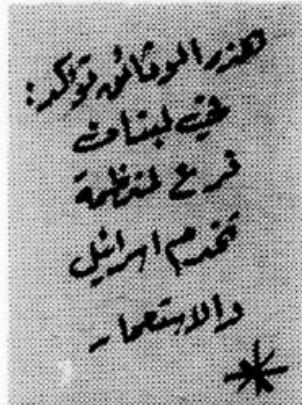 هذه الوثائق تؤكد:
في لبنان
فرع لمنظمة
تخدم اسرائيل
والاستعمار